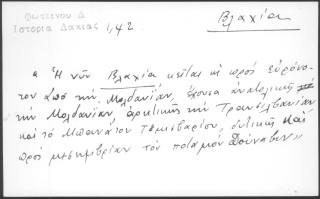 Φωτεινου Δ
Ιστορία Δακίας 1,42
Βλαχία
« Ἡ νῦν Βλαχία κεῖται ὡς πρός εὐρόνο-
τον ἀπό τήν Μολδανίαν, ἔχουσα ἀνατολικῆς
τήν Μολδανίαν, ἀρκτικῆς τήν Τρανσιλβανίαν
καί τό Μπανάτον Τεμισβαρίου, δυτικῆς καί
πρός μεσημβρίαν τόν ποταμόν Δούναβιν»